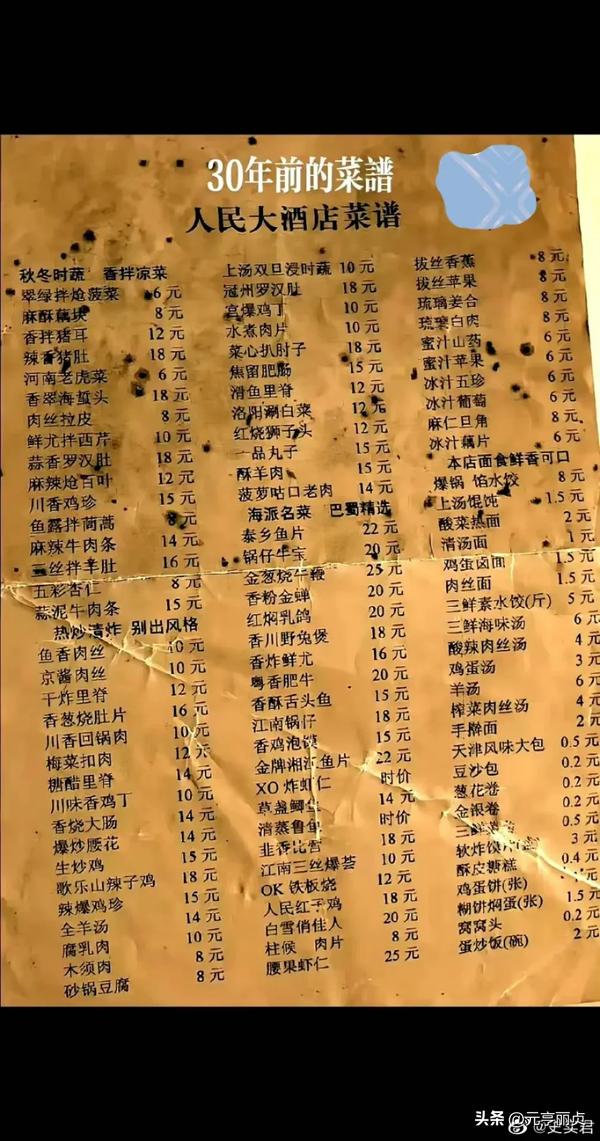 30年前的菜譜
人民大酒店菜谱
秋冬时蔬 香拌凉菜
翠绿拌炝菠菜 6 元
麻酥藕块 8 元
香拌猪耳 12 元
辣香猪肚 18 元
河南老虎菜 6 元
香翠海蜇头 18 元
肉丝拉皮 8 元
鲜尤拌西芹 10 元
蒜香罗汉肚 18 元
麻辣炝百叶 12 元
川香鸡珍 15 元
鱼露拌茼蒿 8 元
麻辣牛肉条 14 元
三丝拌羊肚 16 元
五彩杏仁 8 元
蒜泥牛肉条 15 元
热炒清炸 别出风格
鱼香肉丝 10 元
京酱肉丝 10 元
干炸里脊 12 元
香葱烧肚片 16 元
川香回锅肉 10 元
梅菜扣肉 12 元
糖醋里脊 14 元
川味香鸡丁 10 元
香烧大肠 14 元
爆炒腰花 14 元
生炒鸡 15 元
歌乐山辣子鸡 18 元
辣爆鸡珍 15 元
全羊汤 14 元
腐乳肉 10 元
木须肉 8 元
砂锅豆腐 8 元
上汤双旦浸时蔬 10 元
冠州罗汉肚 18 元
宫爆鸡丁 10 元
水煮肉片 10 元
菜心扒肘子 18 元
焦留肥肠 15 元
滑鱼里脊 12 元
洛阳涮白菜 12 元
红烧狮子头 12 元
一品丸子 15 元
酥羊肉 15 元
菠萝咕口老肉 14 元
海派名菜 巴蜀精选
泰乡鱼片 22 元
锅仔牛宝 20 元
金葱烧牛鞭 25 元
香粉金蝉 20 元
红焖乳鸽 20 元
香川野兔煲 18 元
香炸鲜尤 16 元
粤香肥牛 20 元
香酥舌头鱼 15 元
江南锅仔 18 元
香鸡泡馍 15 元
金牌湘江鱼片 22 元
XO 炸虾仁 时价
草盏鲫仁 14 元
清蒸鲁鱼 时价
韭香比宫 18 元
江南三丝爆荟 10 元
OK 铁板烧 12 元
人民红干鸡 18 元
白雪俏佳人 20 元
柱候 肉片 8 元
腰果虾仁 25 元
拔丝香蕉 8 元
拔丝苹果 8 元
琉璃姜合 8 元
琉璃白肉 8 元
蜜汁山药 6 元
蜜汁苹果 6 元
冰汁五珍 6 元
冰汁葡萄 6 元
麻仁旦角 8 元
冰汁藕片 6 元
本店面食鲜香可口
爆锅 馅水饺 8 元
上汤馄饨 1.5 元
酸菜热面 2 元
清汤面 1 元
鸡蛋卤面 1.5 元
肉丝面 2 元
三鲜素水饺(斤) 5 元
三鲜海味汤 6 元
酸辣肉丝汤 4 元
鸡蛋汤 3 元
羊汤 6 元
榨菜肉丝汤 4 元
手擀面 2 元
天津风味大包 0.5 元
豆沙包 0.2 元
葱花卷 0.2 元
金银卷 0.5 元
三鲜 0.2 元
软炸馍片 3 元
酥皮糖糕 0.4 元
鸡蛋饼(张) 1 元
糊饼焖蛋(张) 1.5 元
窝窝头 0.2 元
蛋炒饭(碗) 2 元
头条 @元亨丽贞
@史实君